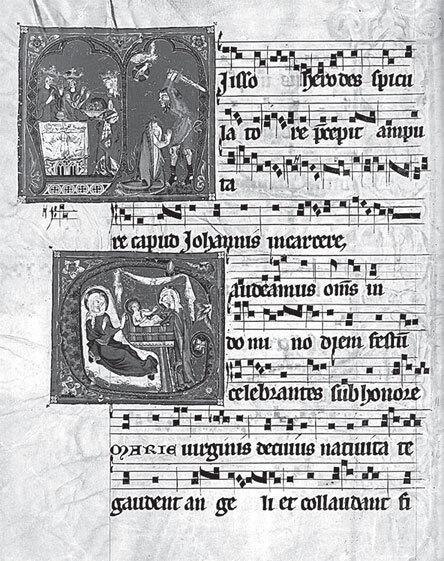 Misso herodes spicu
la to re p̄cepit ampu
ta
re capud Johannis incarcere,
Gaudeamus om̄s in
do mi no diem festū
celebrantes sub honore
MARIE uirginis decuius nativita te
gaudent an ge li et collaudant fi